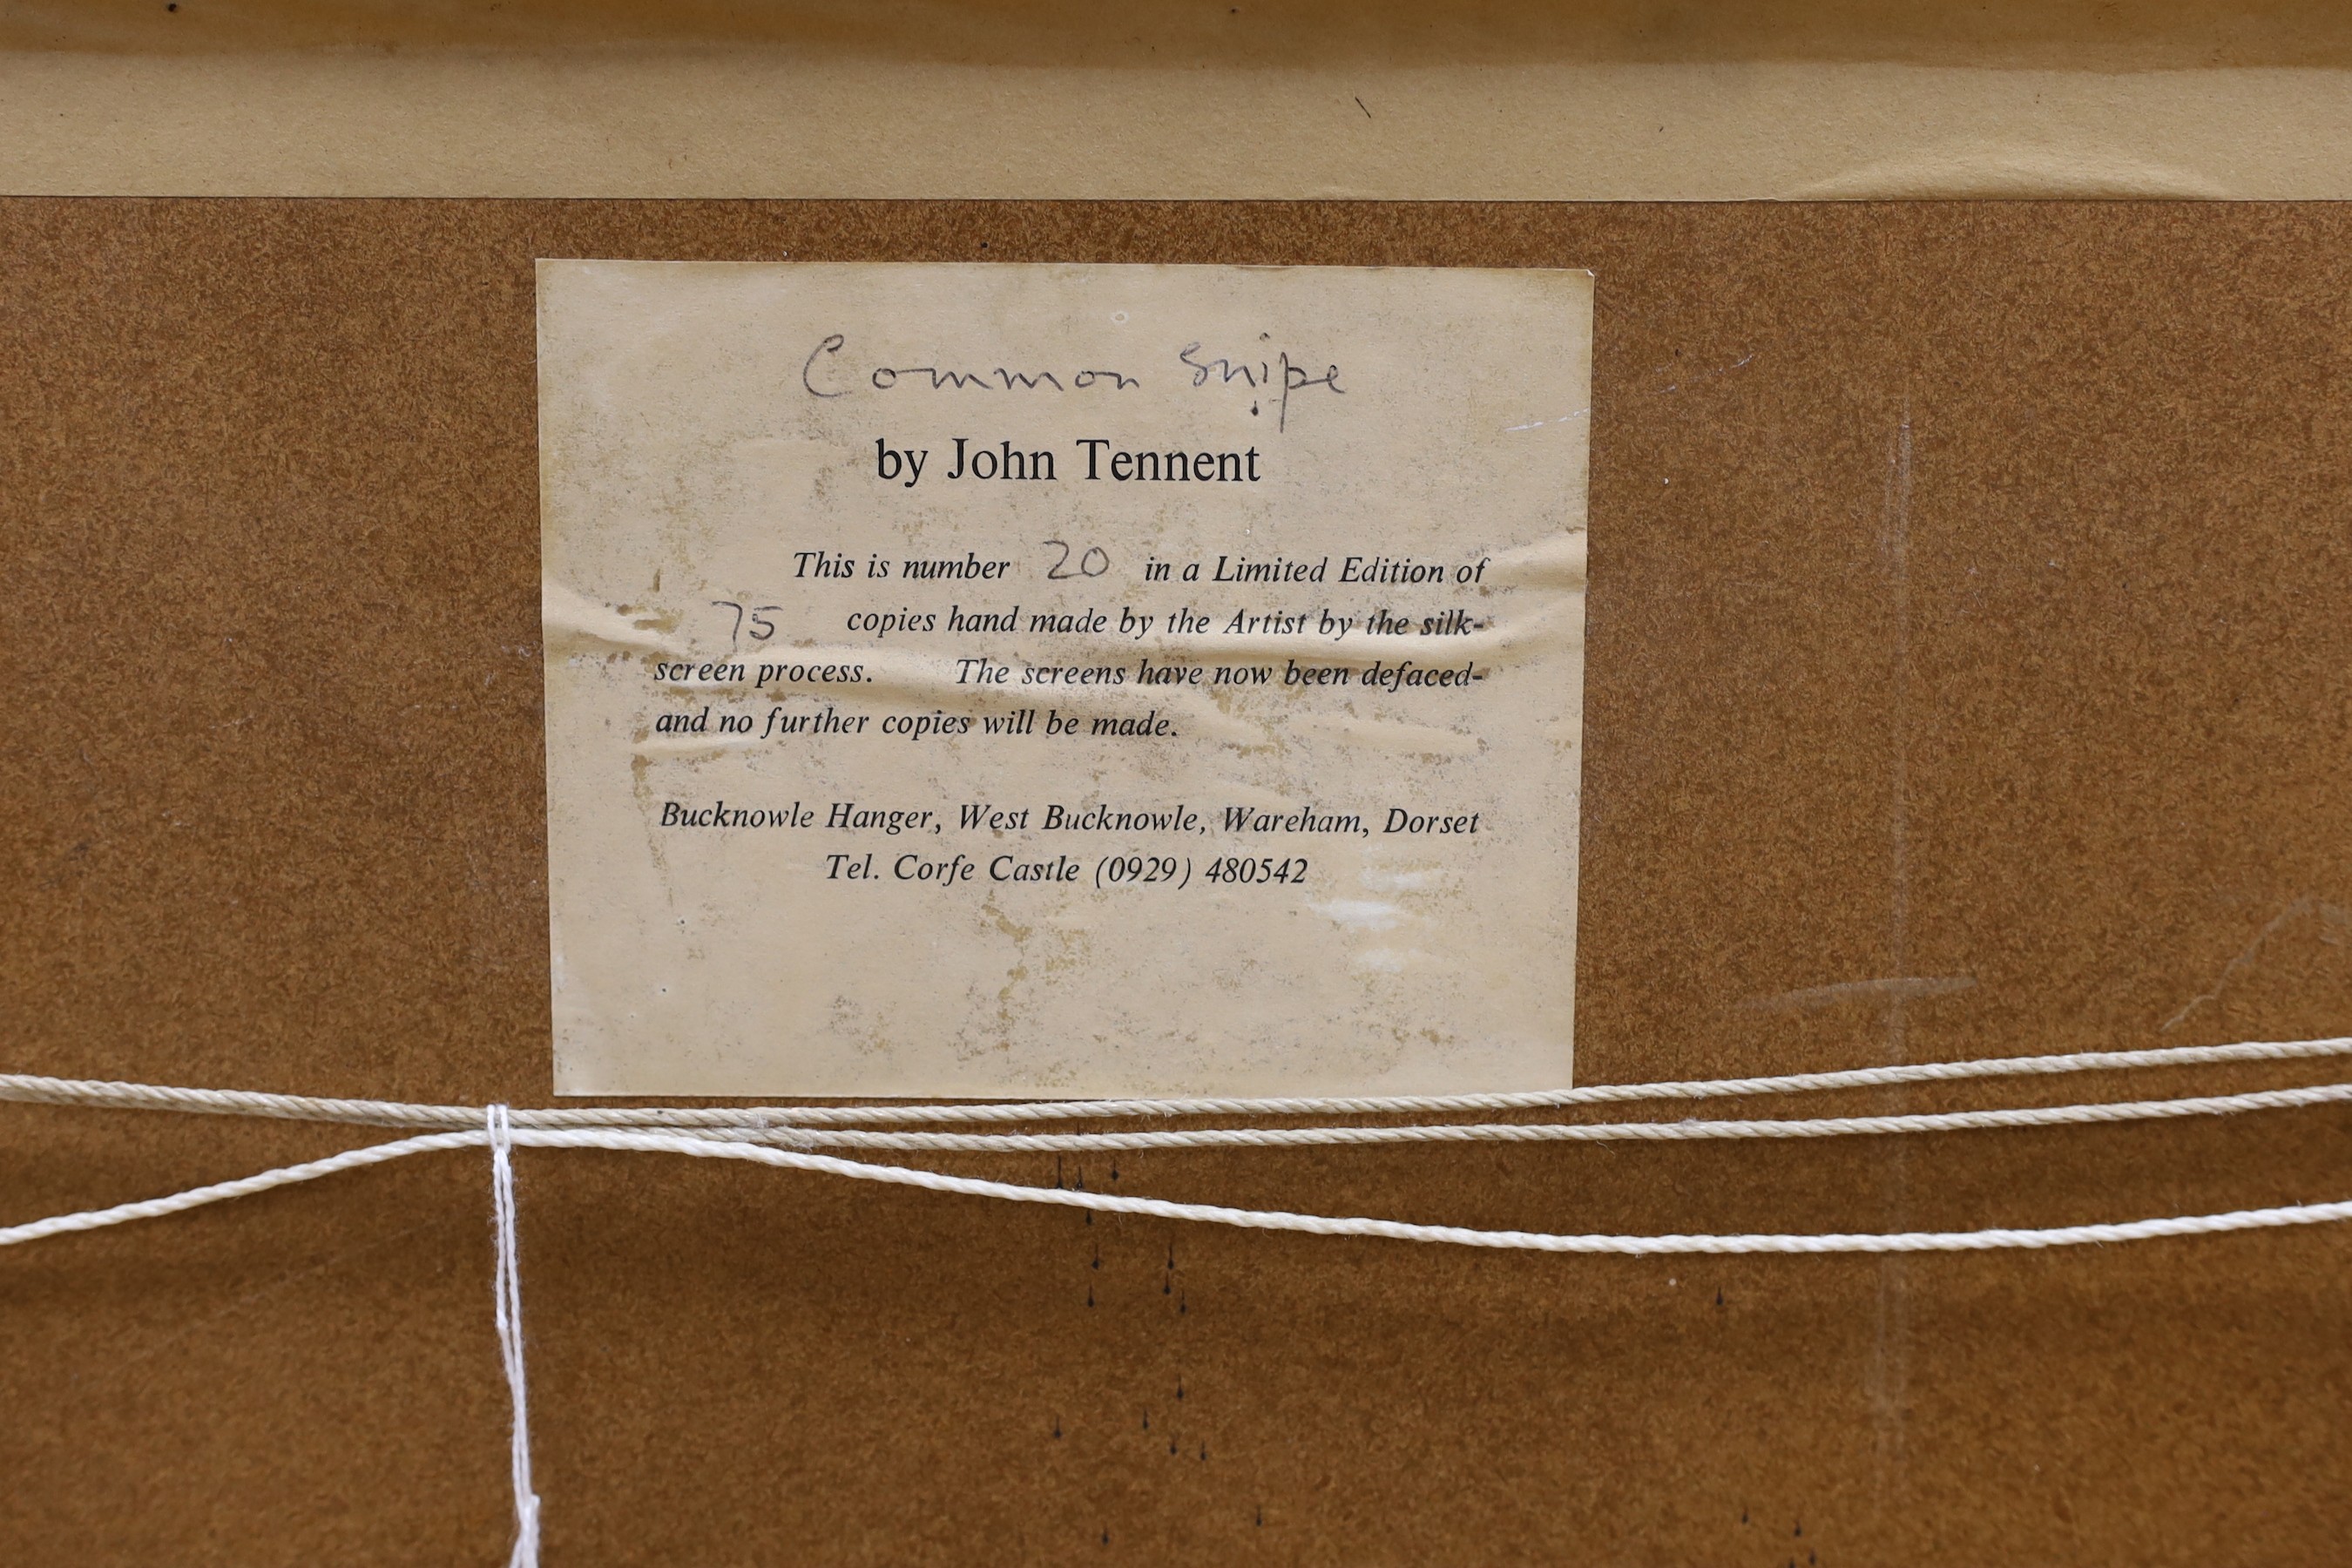 Common Snipe
by John Tennent
This is number 20 in a Limited Edition of
75 copies hand made by the Artist by the silk-
screen process. The screens have now been defaced-
and no further copies will be made.
Bucknowle Hanger, West Bucknowle, Wareham, Dorset
Tel. Corfe Castle (0929) 480542